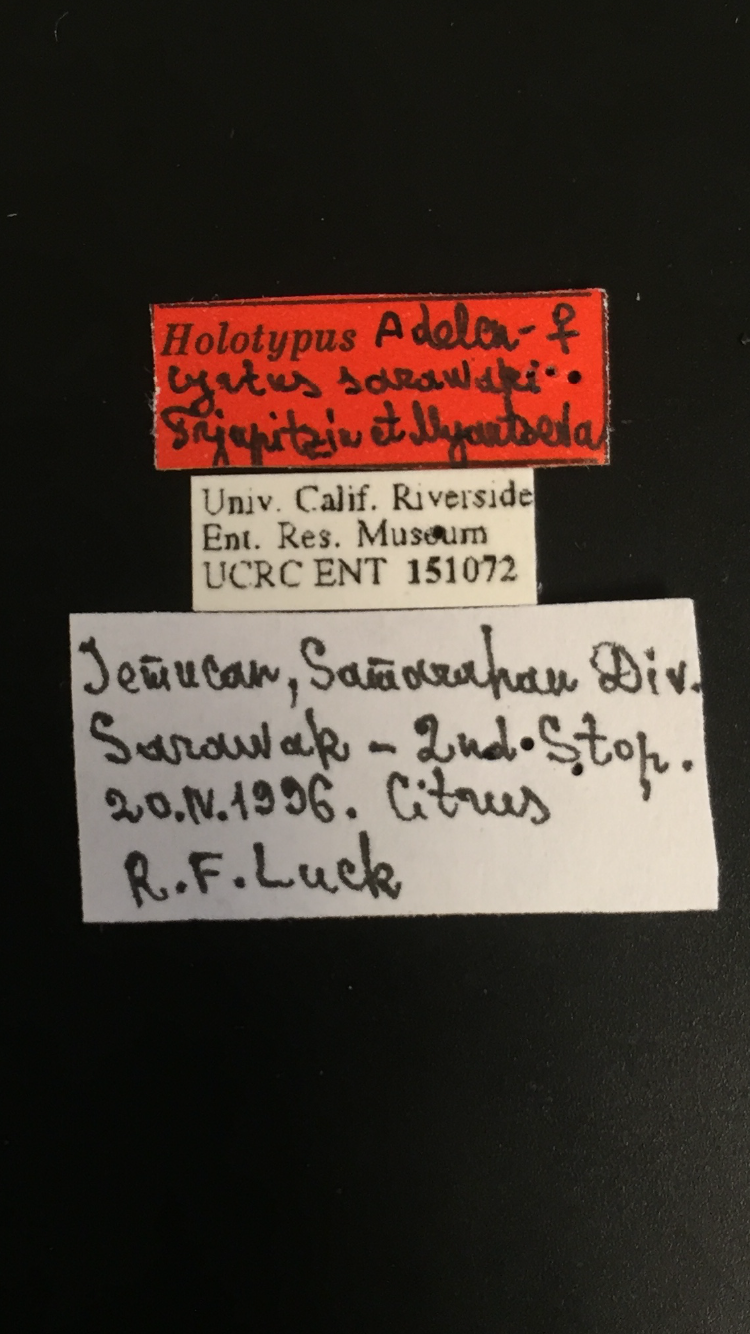 Holotypus Adelen- ♀
cyrtus sarawaki
Trjapitzin et Myartseva
Univ. Calif. Riverside
Ent. Res. Museum
UCRC ENT 151072
Semucan, Samarahan Div.
Sarawak - 2nd. Stop.
20.IV.1996. Citrus
R.F. Luck